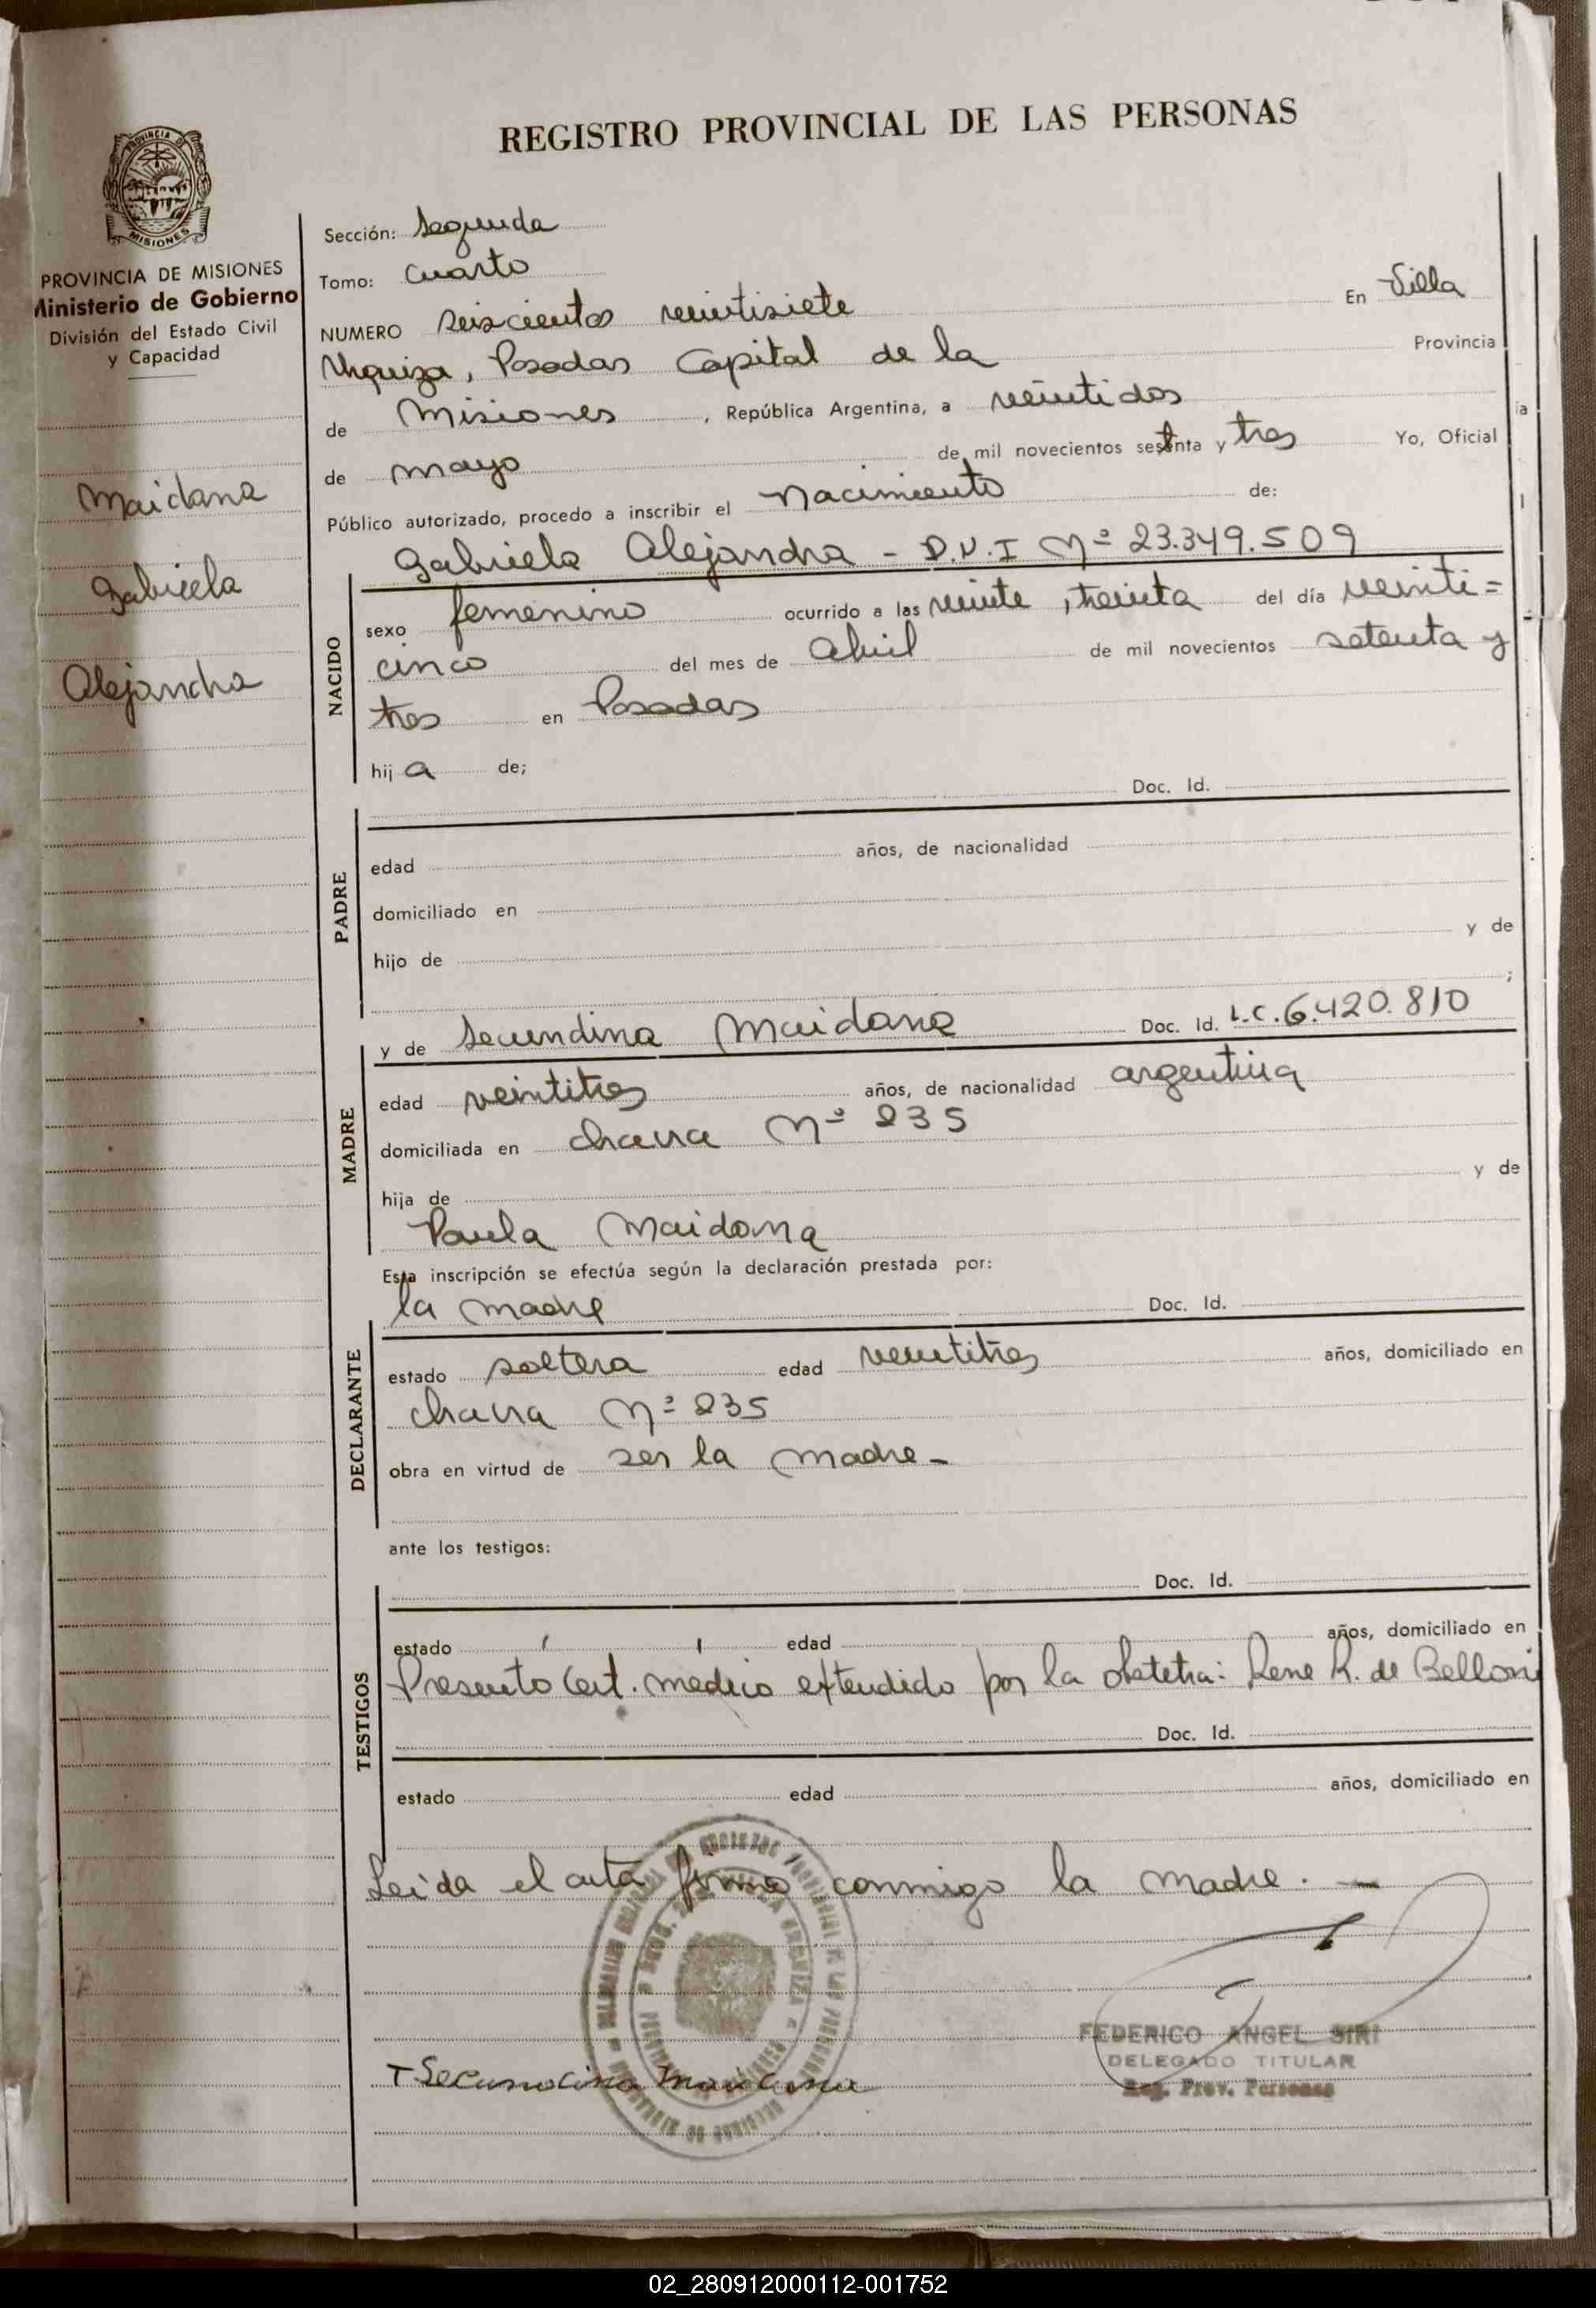 REGISTRO PROVINCIAL DE LAS PERSONAS
PROVINCIA DE
MISIONES
PROVINCIA DE MISIONES
Ministerio de Gobierno
División del Estado Civil
y Capacidad
Maidana
Gabriela
Alejandra
Sección: Segunda
Tomo: Cuarto
NUMERO Seiscientos veintisiete En Villa
Urquiza, Posadas Capital de la Provincia
de Misiones, República Argentina, a veintidos
de mayo de mil novecientos setenta y tres Yo, Oficial
Público autorizado, procedo a inscribir el Nacimiento de:
Gabriela Alejandra - D.N.I Nº 23.349.509
NACIDO
sexo femenino ocurrido a las veinte, treinta del día veinti=
cinco del mes de Abril de mil novecientos setenta y
tres en Posadas
hija de;
Doc. Id.
PADRE
edad años, de nacionalidad
domiciliado en
hijo de y de
;
MADRE
y de Secundina Maidana Doc. Id. L.C. 6.420.810
edad veintitres años, de nacionalidad argentina
domiciliada en chacra Nº 235
hija de y de
Paula Maidana
Esta inscripción se efectúa según la declaración prestada por:
la madre Doc. Id.
DECLARANTE
estado soltera edad veintitres años, domiciliado en
chacra Nº 235
obra en virtud de ser la madre-
ante los testigos:
Doc. Id.
TESTIGOS
estado edad años, domiciliado en
Presento Cert. medico extendido por la obstetra: Rene R. de Belloni
Doc. Id.
estado edad años, domiciliado en
Leida el acta firma conmigo la madre.
FEDERICO ANGEL SIRI
DELEGADO TITULAR
Reg. Prov. Personas
Secundina Maidana
02_280912000112-001752